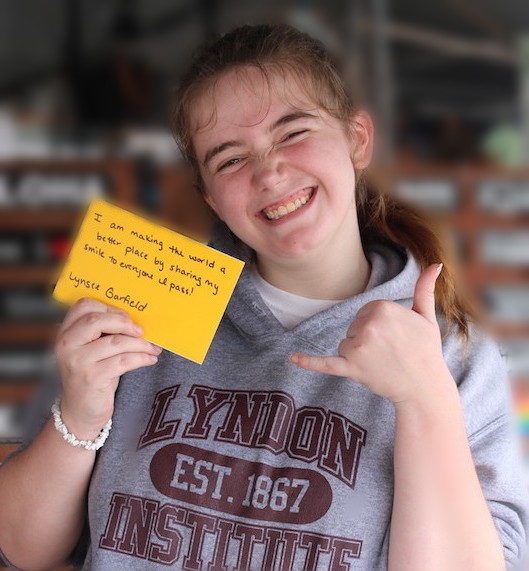 I am making the world a
better place by sharing my
smile to everyone I pass!
Lynsee Garfield
LYNDON
EST. 1867
INSTITUTE